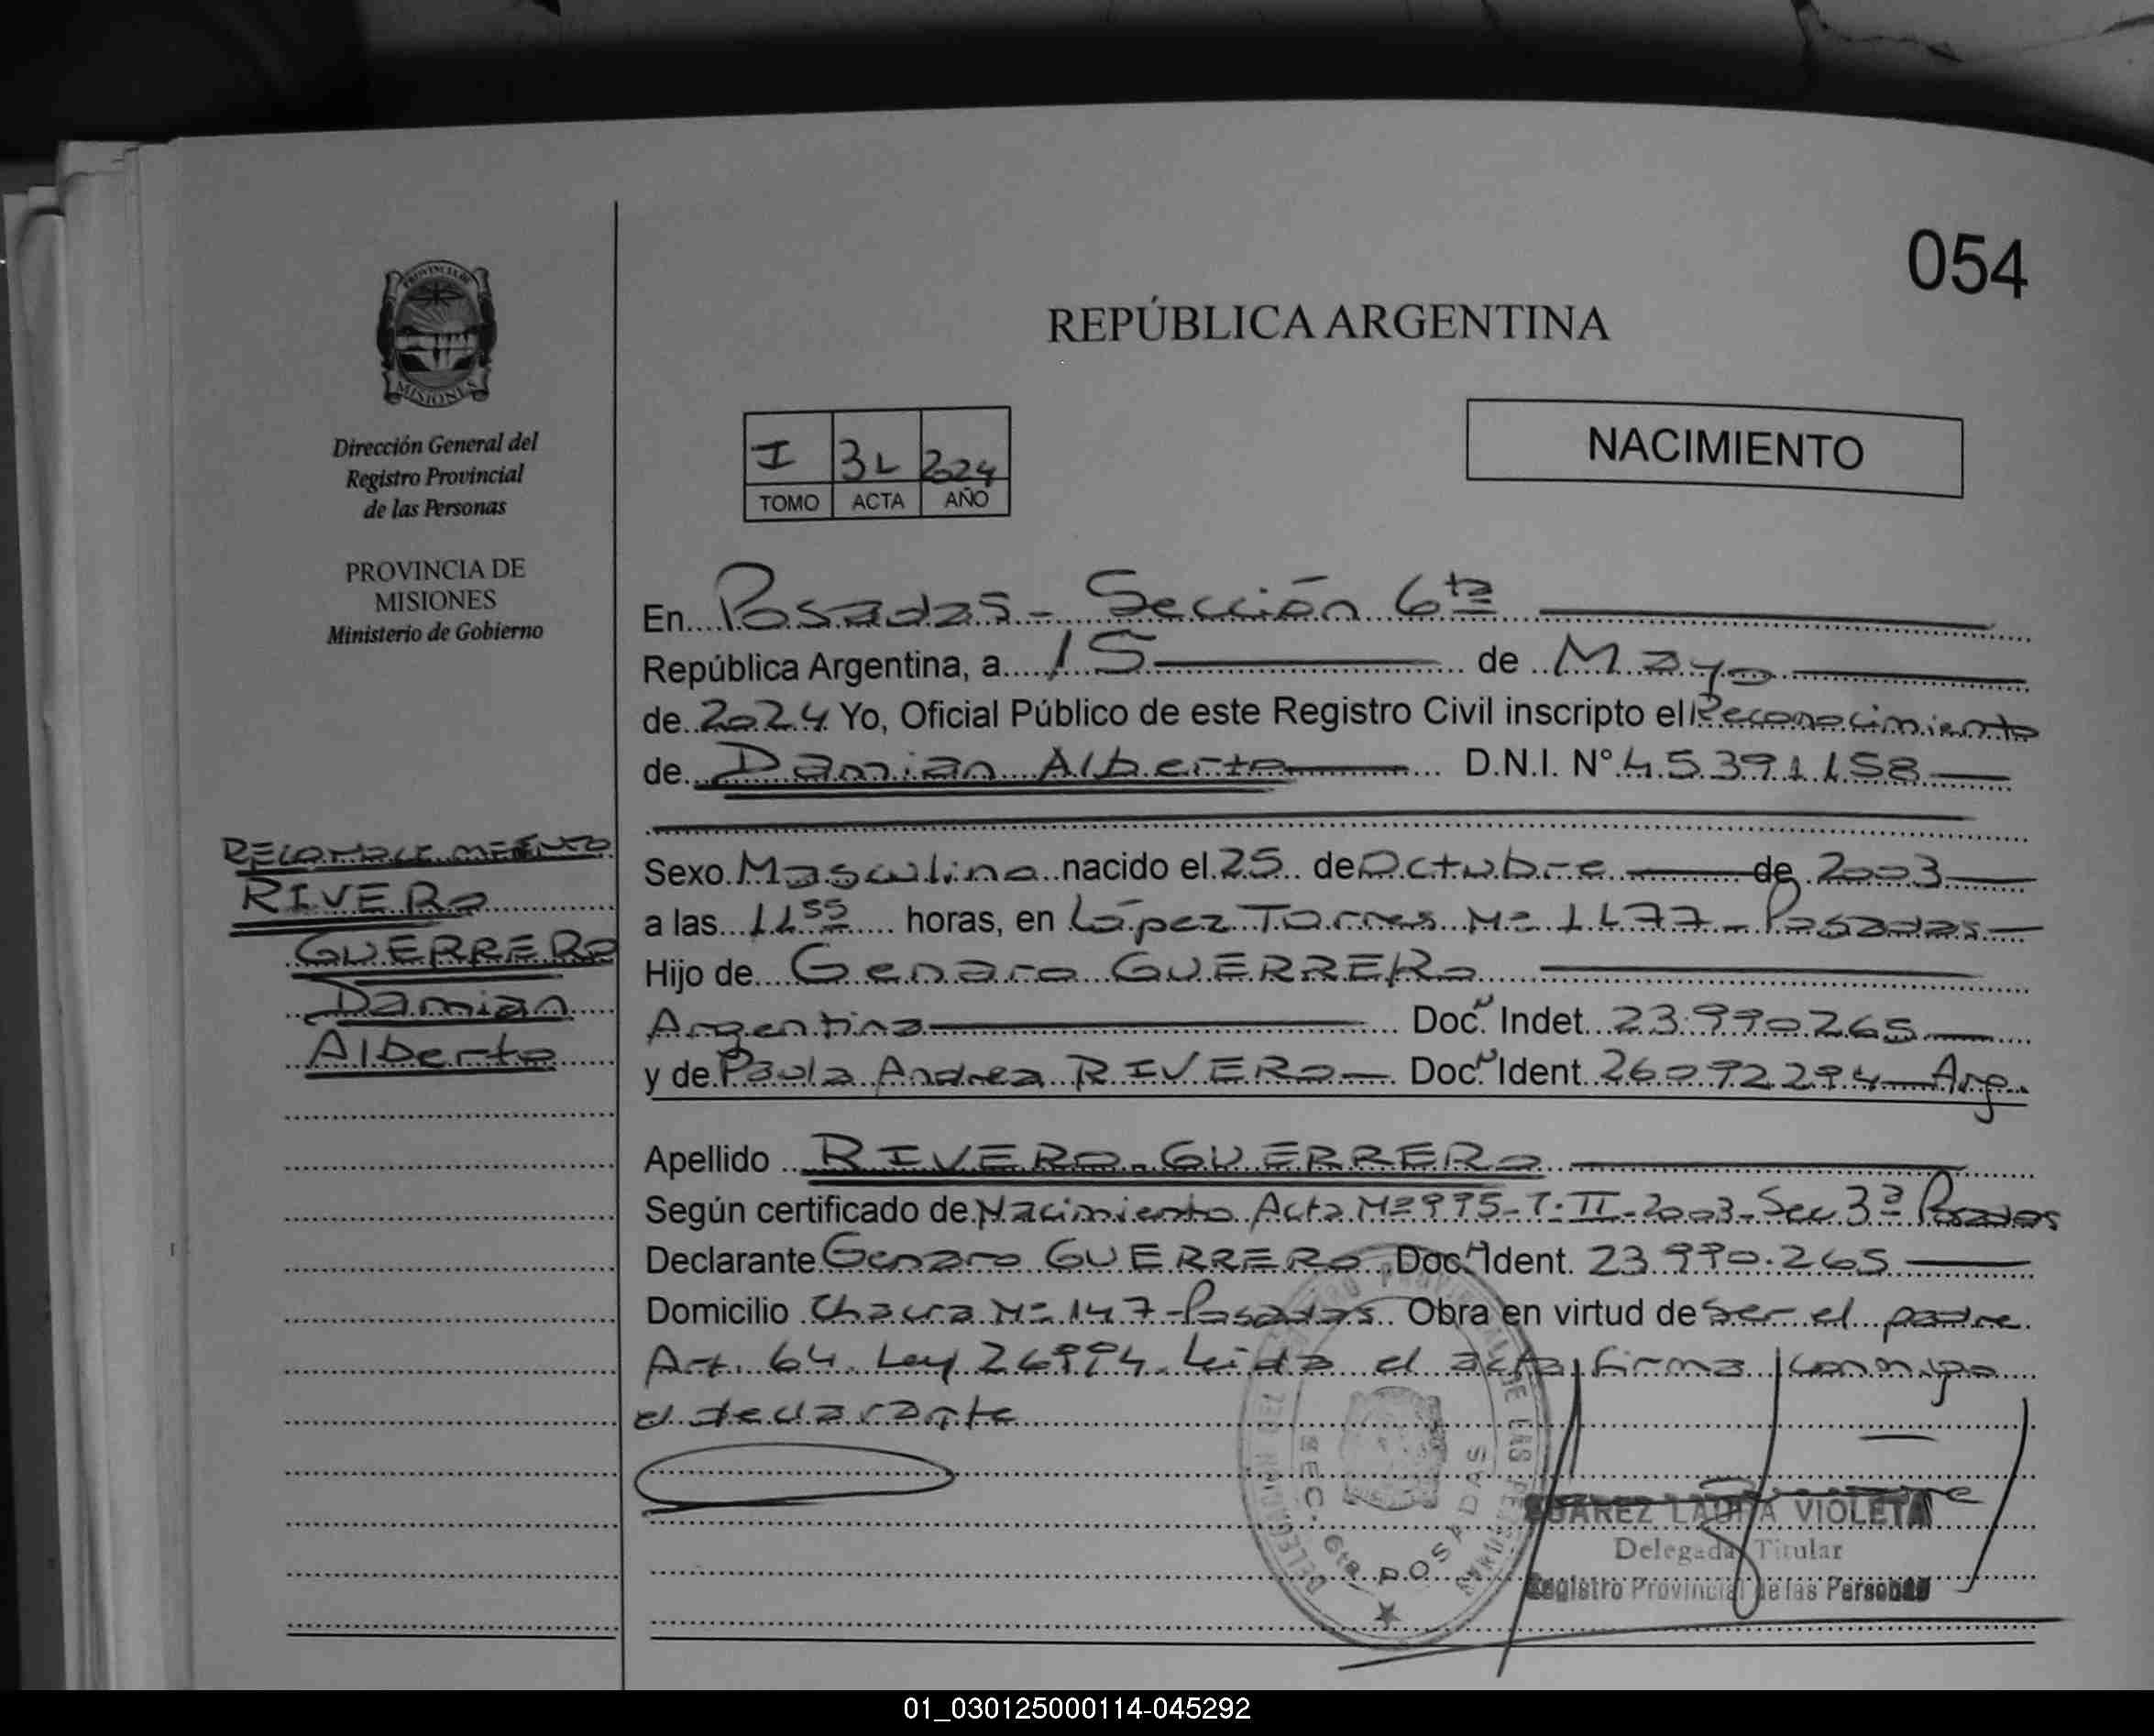 054
REPÚBLICA ARGENTINA
PROVINCIA DE
MISIONES
Dirección General del
Registro Provincial
de las Personas
PROVINCIA DE
MISIONES
Ministerio de Gobierno
NACIMIENTO
I 31 2024
TOMO ACTA AÑO
En Posadas - Sección 6ta
República Argentina, a 15 de Mayo
de 2024 Yo, Oficial Público de este Registro Civil inscripto el Reconocimiento
de Damian Alberto D.N.I. N° 45391158
Sexo Masculino nacido el 25 de Octubre de 2003
a las 11 55 horas, en López Torres Nº 1177 - Posadas
Hijo de Genaro GUERRERO
Argentina Doc. Indet. 23.990265
y de Paula Andrea RIVERO Doc. Ident. 26092294 Arg.
Apellido RIVERO GUERRERO
Según certificado de Nacimiento Acta Nº 995-T-II-2003-Sec 3ª Posadas
Declarante Genaro GUERRERO Doc. Ident. 23.990.265
Domicilio Chacra Nº 147 - Posadas Obra en virtud de ser el padre
Art. 64 Ley 26994 Leida el acta firma conmigo
el declarante
RECONOCIMIENTO
RIVERO
GUERRERO
Damian
Alberto
SEC. 6ta POSADAS
SUAREZ LAURA VIOLETA
Delegada Titular
Registro Provincial de las Personas
01_030125000114-045292